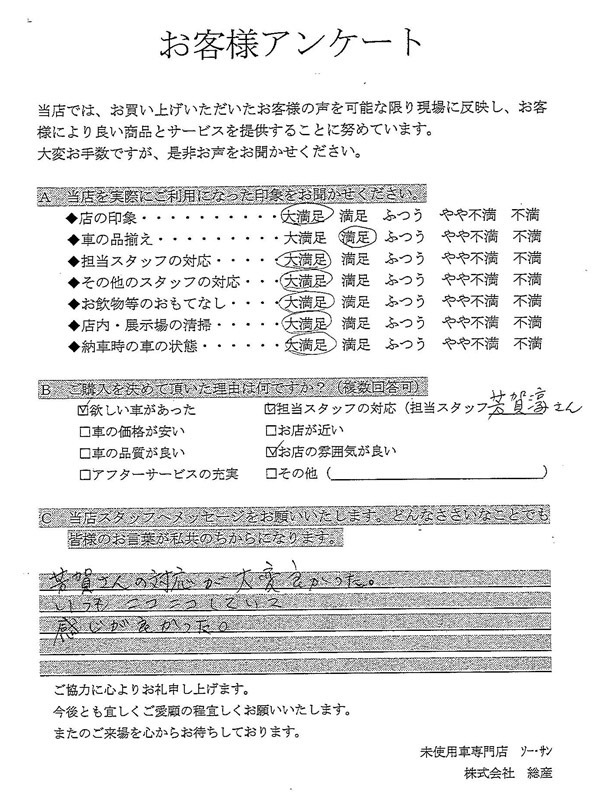 お客様アンケート
当店では、お買い上げいただいたお客様の声を可能な限り現場に反映し、お客
様により良い商品とサービスを提供することに努めています。
大変お手数ですが、是非お声をお聞かせください。
A 当店を実際にご利用になった印象をお聞かせください。
◆店の印象・・・・・・・・・・大満足 満足 ふつう やや不満 不満
◆車の品揃え・・・・・・・・・大満足 満足 ふつう やや不満 不満
◆担当スタッフの対応・・・・・大満足 満足 ふつう やや不満 不満
◆その他のスタッフの対応・・・大満足 満足 ふつう やや不満 不満
◆お飲物等のおもてなし・・・・大満足 満足 ふつう やや不満 不満
◆店内・展示場の清掃・・・・・大満足 満足 ふつう やや不満 不満
◆納車時の車の状態・・・・・・大満足 満足 ふつう やや不満 不満
B ご購入を決めて頂いた理由は何ですか？（複数回答可）
☑欲しい車があった ☑担当スタッフの対応（担当スタッフ 芳賀淳さん
□車の価格が安い □お店が近い
□車の品質が良い ☑お店の雰囲気が良い
□アフターサービスの充実 □その他（ ）
C 当店スタッフへメッセージをお願いいたします。どんなささいなことでも
皆様のお言葉が私共のちからになります。
芳賀さんの対応が大変良かった。
いつもニコニコしていて
感じが良かった。
ご協力に心よりお礼申し上げます。
今後とも宜しくご愛顧の程宜しくお願いいたします。
またのご来場を心からお待ちしております。
未使用車専門店 ソー・サン
株式会社 総産